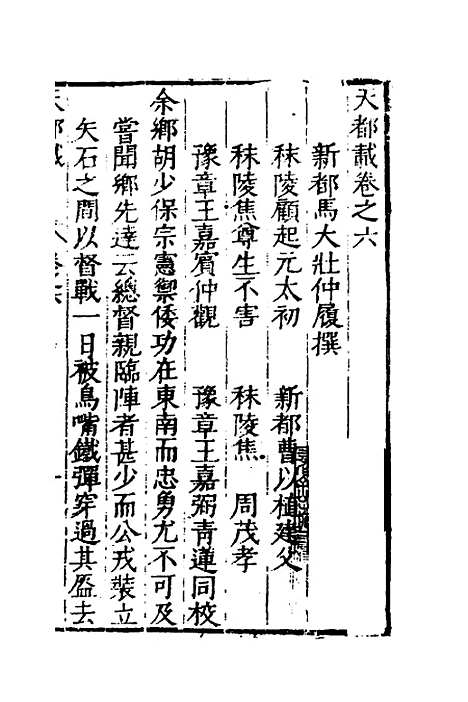 天都載卷之六
新都馬大壯仲履撰
秣陵顧起元太初　新都曹以植建父
秣陵焦尊生不害　秣陵焦　周茂孝
豫章王嘉賓仲觀　豫章王嘉弼青蓮同校
余鄉胡少保宗憲禦倭功在東南而忠勇尤不可及
嘗聞鄉先達云總督親臨陣者甚少而公戎裝立
矢石之間以督戰一日被鳥嘴鐵彈穿過其盔去